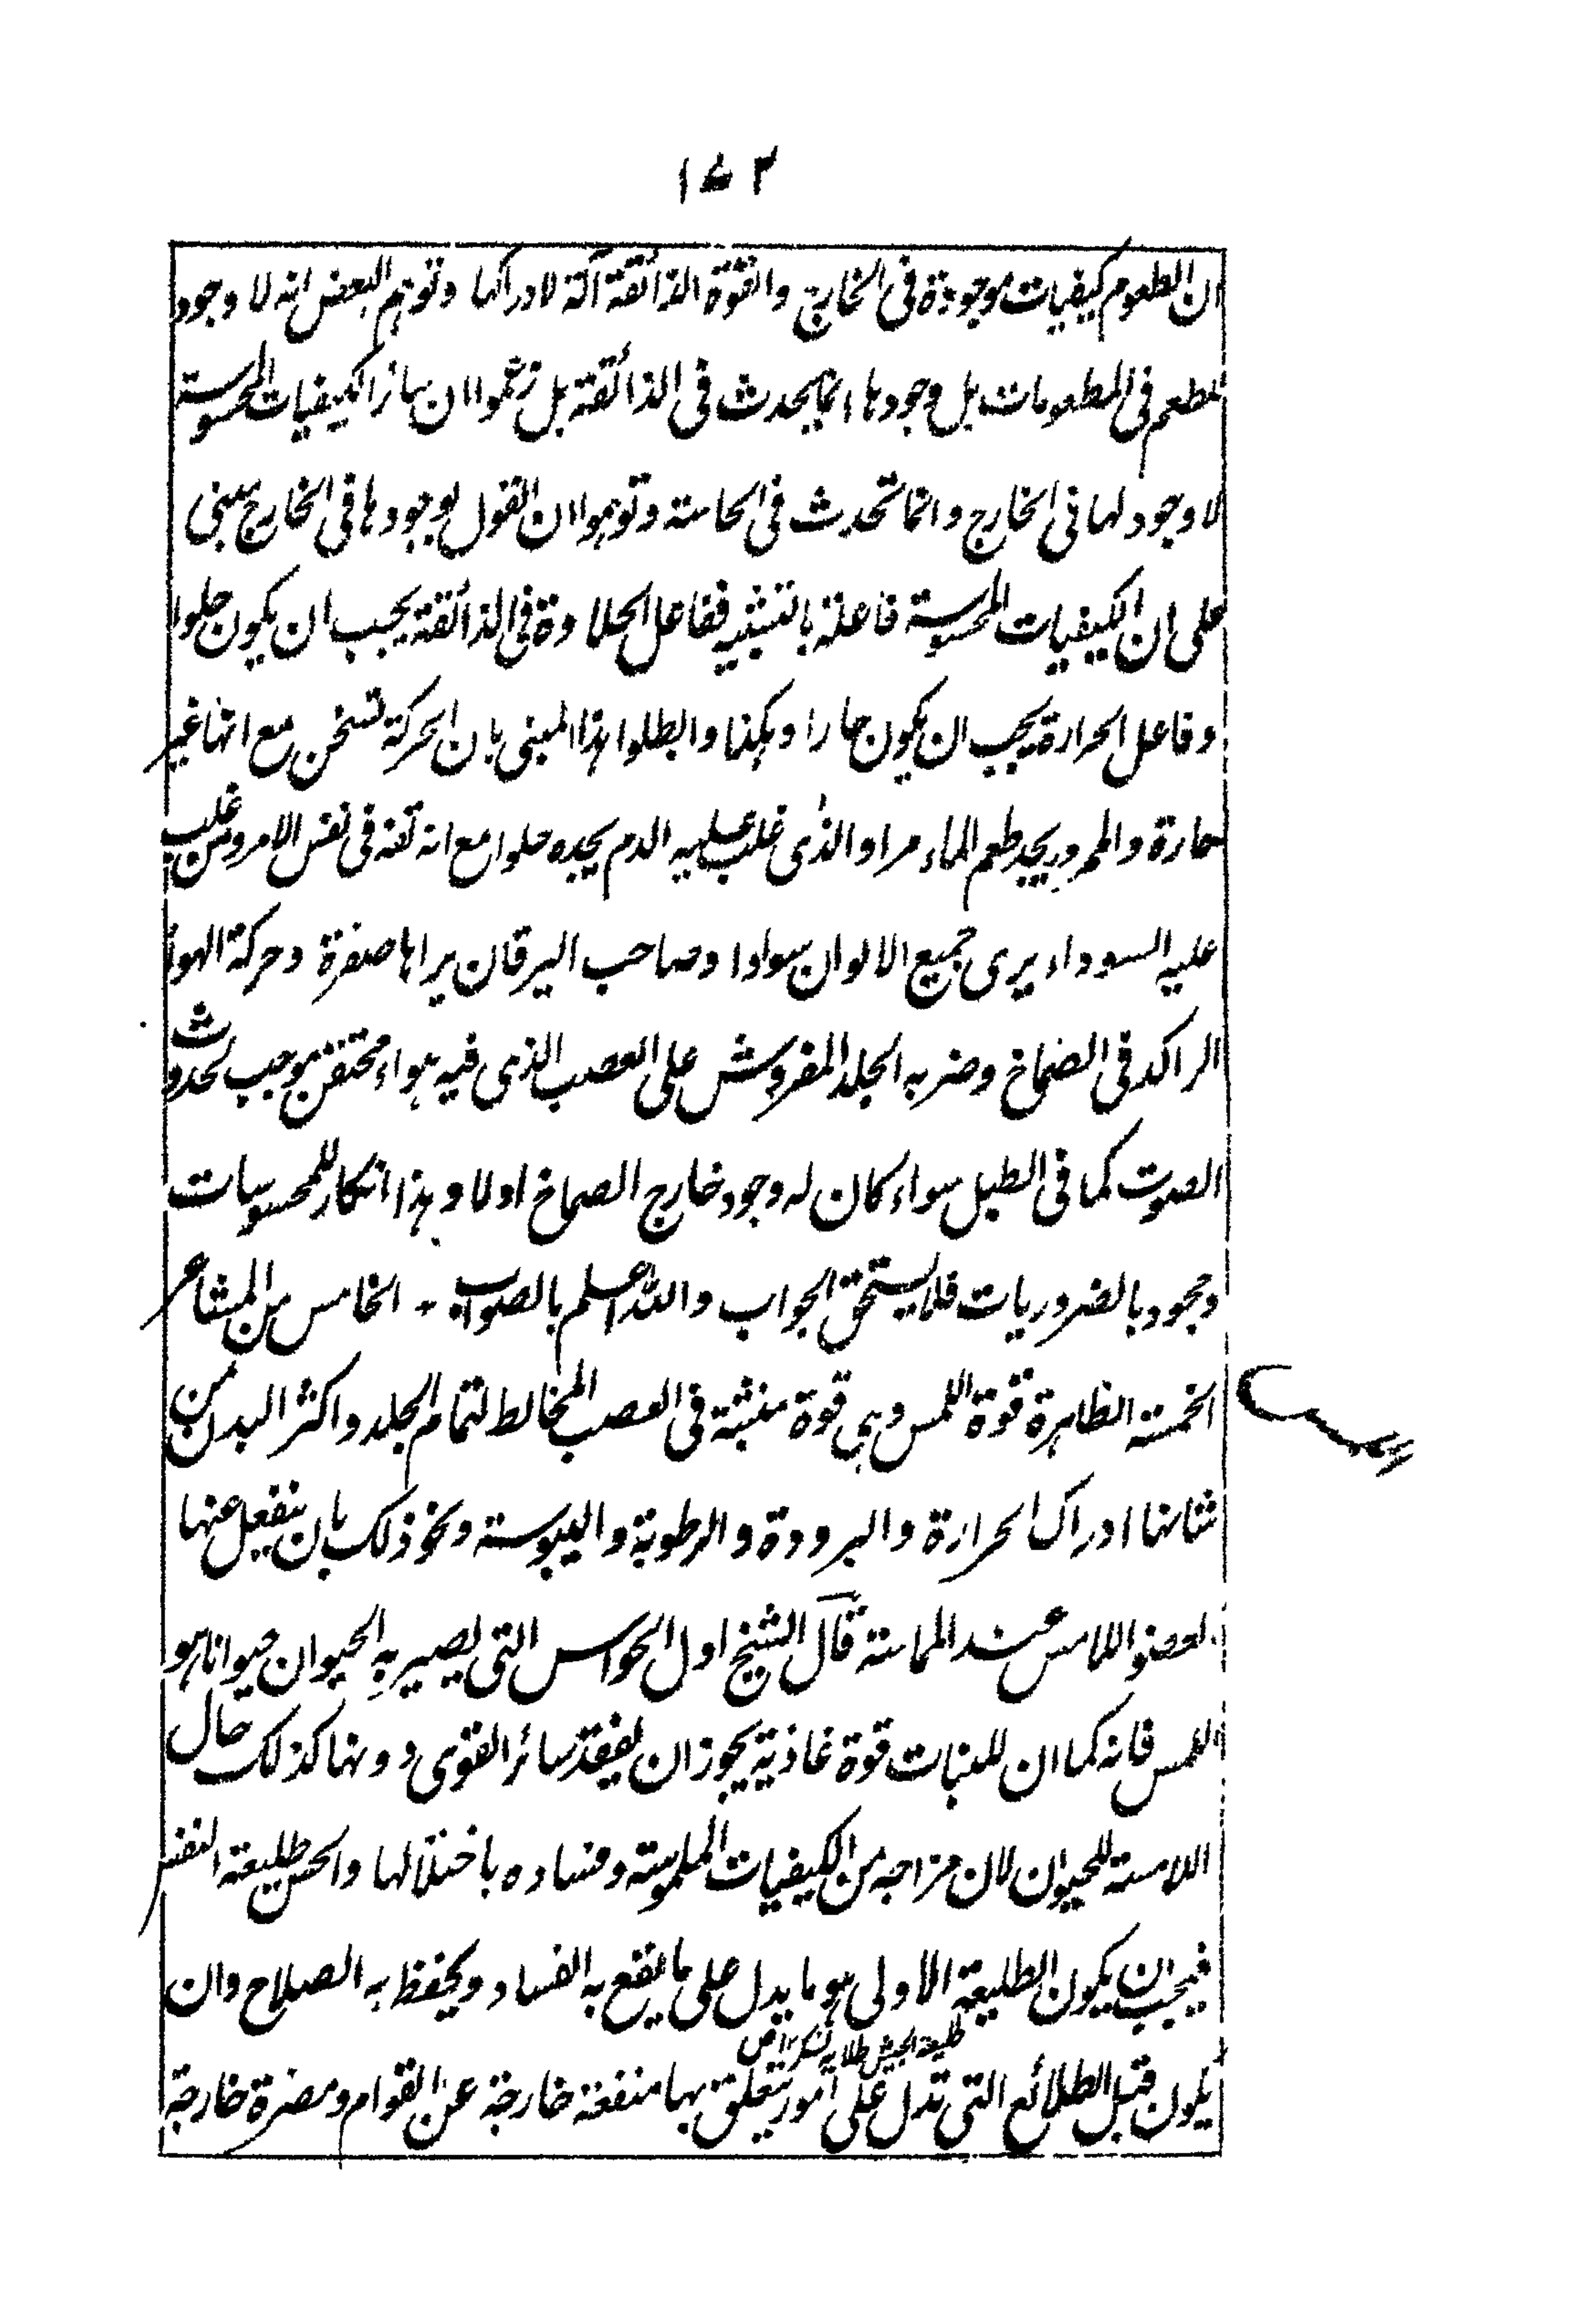 ١٥٢
ان الطعوم كيفيات موجودة فى الخارج والقوة الذائقة آلة لادراكها وتوهم البعض انه لا وجود
للطعم فى المطعومات بل وجودها انما يحدث فى الذائقة بل زعموا ان سائر الكيفيات المحسوسة
لا وجود لها فى الخارج وانما تحدث فى الحاسة وتوهموا ان القول بوجودها فى الخارج مبنى
على ان الكيفيات المحسوسة فاعلة بالتشبيه ففاعل الحلاوة فى الذائقة يجب ان يكون حلوا
وفاعل الحرارة يجب ان يكون حارا وهكذا وابطلوا هذا المبنى بان الحركة تسخن مع انها غير
حارة والممرور يجد طعم الماء مرا والذى غلب عليه الدم يجده حلوا مع انه تفه فى نفس الامر ومن غلب
عليه السوداء يرى جميع الالوان سوادا وصاحب اليرقان يراها صفرة وحركة الهواء
الراكد فى الصماخ وضربه الجلد المفروش على العصب الذى فيه هواء محتقن موجب لحدوث
الصوت كما فى الطبل سواء كان له وجود خارج الصماخ اولا وهذا انكار للمحسوسات
وجحود بالضروريات فلا يستحق الجواب والله اعلم بالصواب - الخامس من المشاعر
الخمسة الظاهرة قوة اللمس وهى قوة منبثة فى العصب المخالط لتمام الجلد واكثر البدن من
شانها ادراك الحرارة والبرودة والرطوبة واليبوسة ونحو ذلك بان ينفعل عنها
العضو اللامس عند المماسة قال الشيخ اول الحواس التى يصير به الحيوان حيوانا هو
اللمس فانه كما ان للنبات قوة غاذية يجوز ان يفقد سائر القوى دونها كذلك حال
اللامسة للحيوان لان مزاجه من الكيفيات الملموسة وفساده باختلالها والحس طليعة النفس
فيجب ان يكون الطليعة الاولى هو ما يدل على ما يقع به الفساد ويحفظ به الصلاح وان
طليعة الجيش طلايه لشكر
يكون قبل الطلائع التى تدل على امور يتعلق بها منفعة خارجة عن القوام ومضرة خارجة